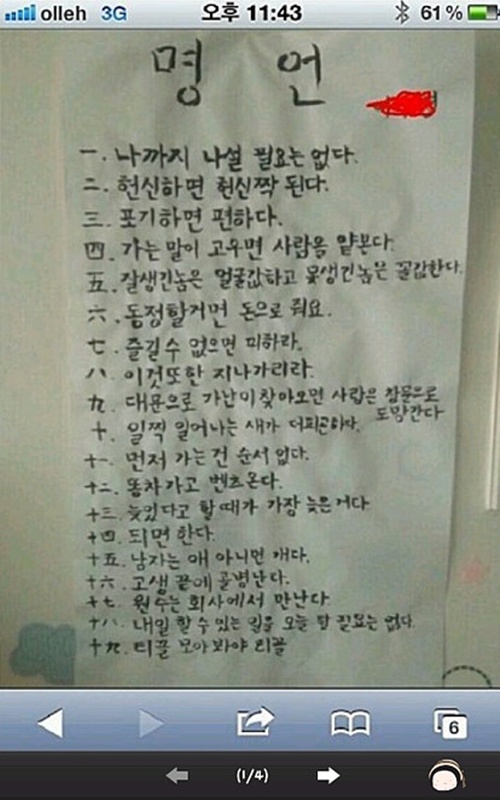 olleh 3G 오후 11:43 61%
명 언
一. 나까지 나설 필요는 없다.
二. 헌신하면 헌신짝 된다.
三. 포기하면 편하다.
四. 가는 말이 고우면 사람을 얕본다.
五. 잘생긴놈은 얼굴값하고 못생긴놈은 꼴값한다.
六. 동정할거면 돈으로 줘요.
七. 즐길수 없으면 피하라.
八. 이것또한 지나가리라.
九. 대문으로 가난이 찾아오면 사랑은 창문으로
도망간다
十. 일찍 일어나는 새가 더피곤하다.
十一. 먼저 가는건 순서 없다.
十二. 똥차가고 벤츠온다.
十三. 늦었다고 할때가 가장 늦은거다
十四. 되면 한다.
十五. 남자는 애 아니면 개다.
十六. 고생 끝에 골병난다.
十七. 원수는 회사에서 만난다.
十八. 내일 할 수 있는 일을 오늘 할 필요는 없다.
十九. 티끌 모아봐야 티끌
6
(1/4)